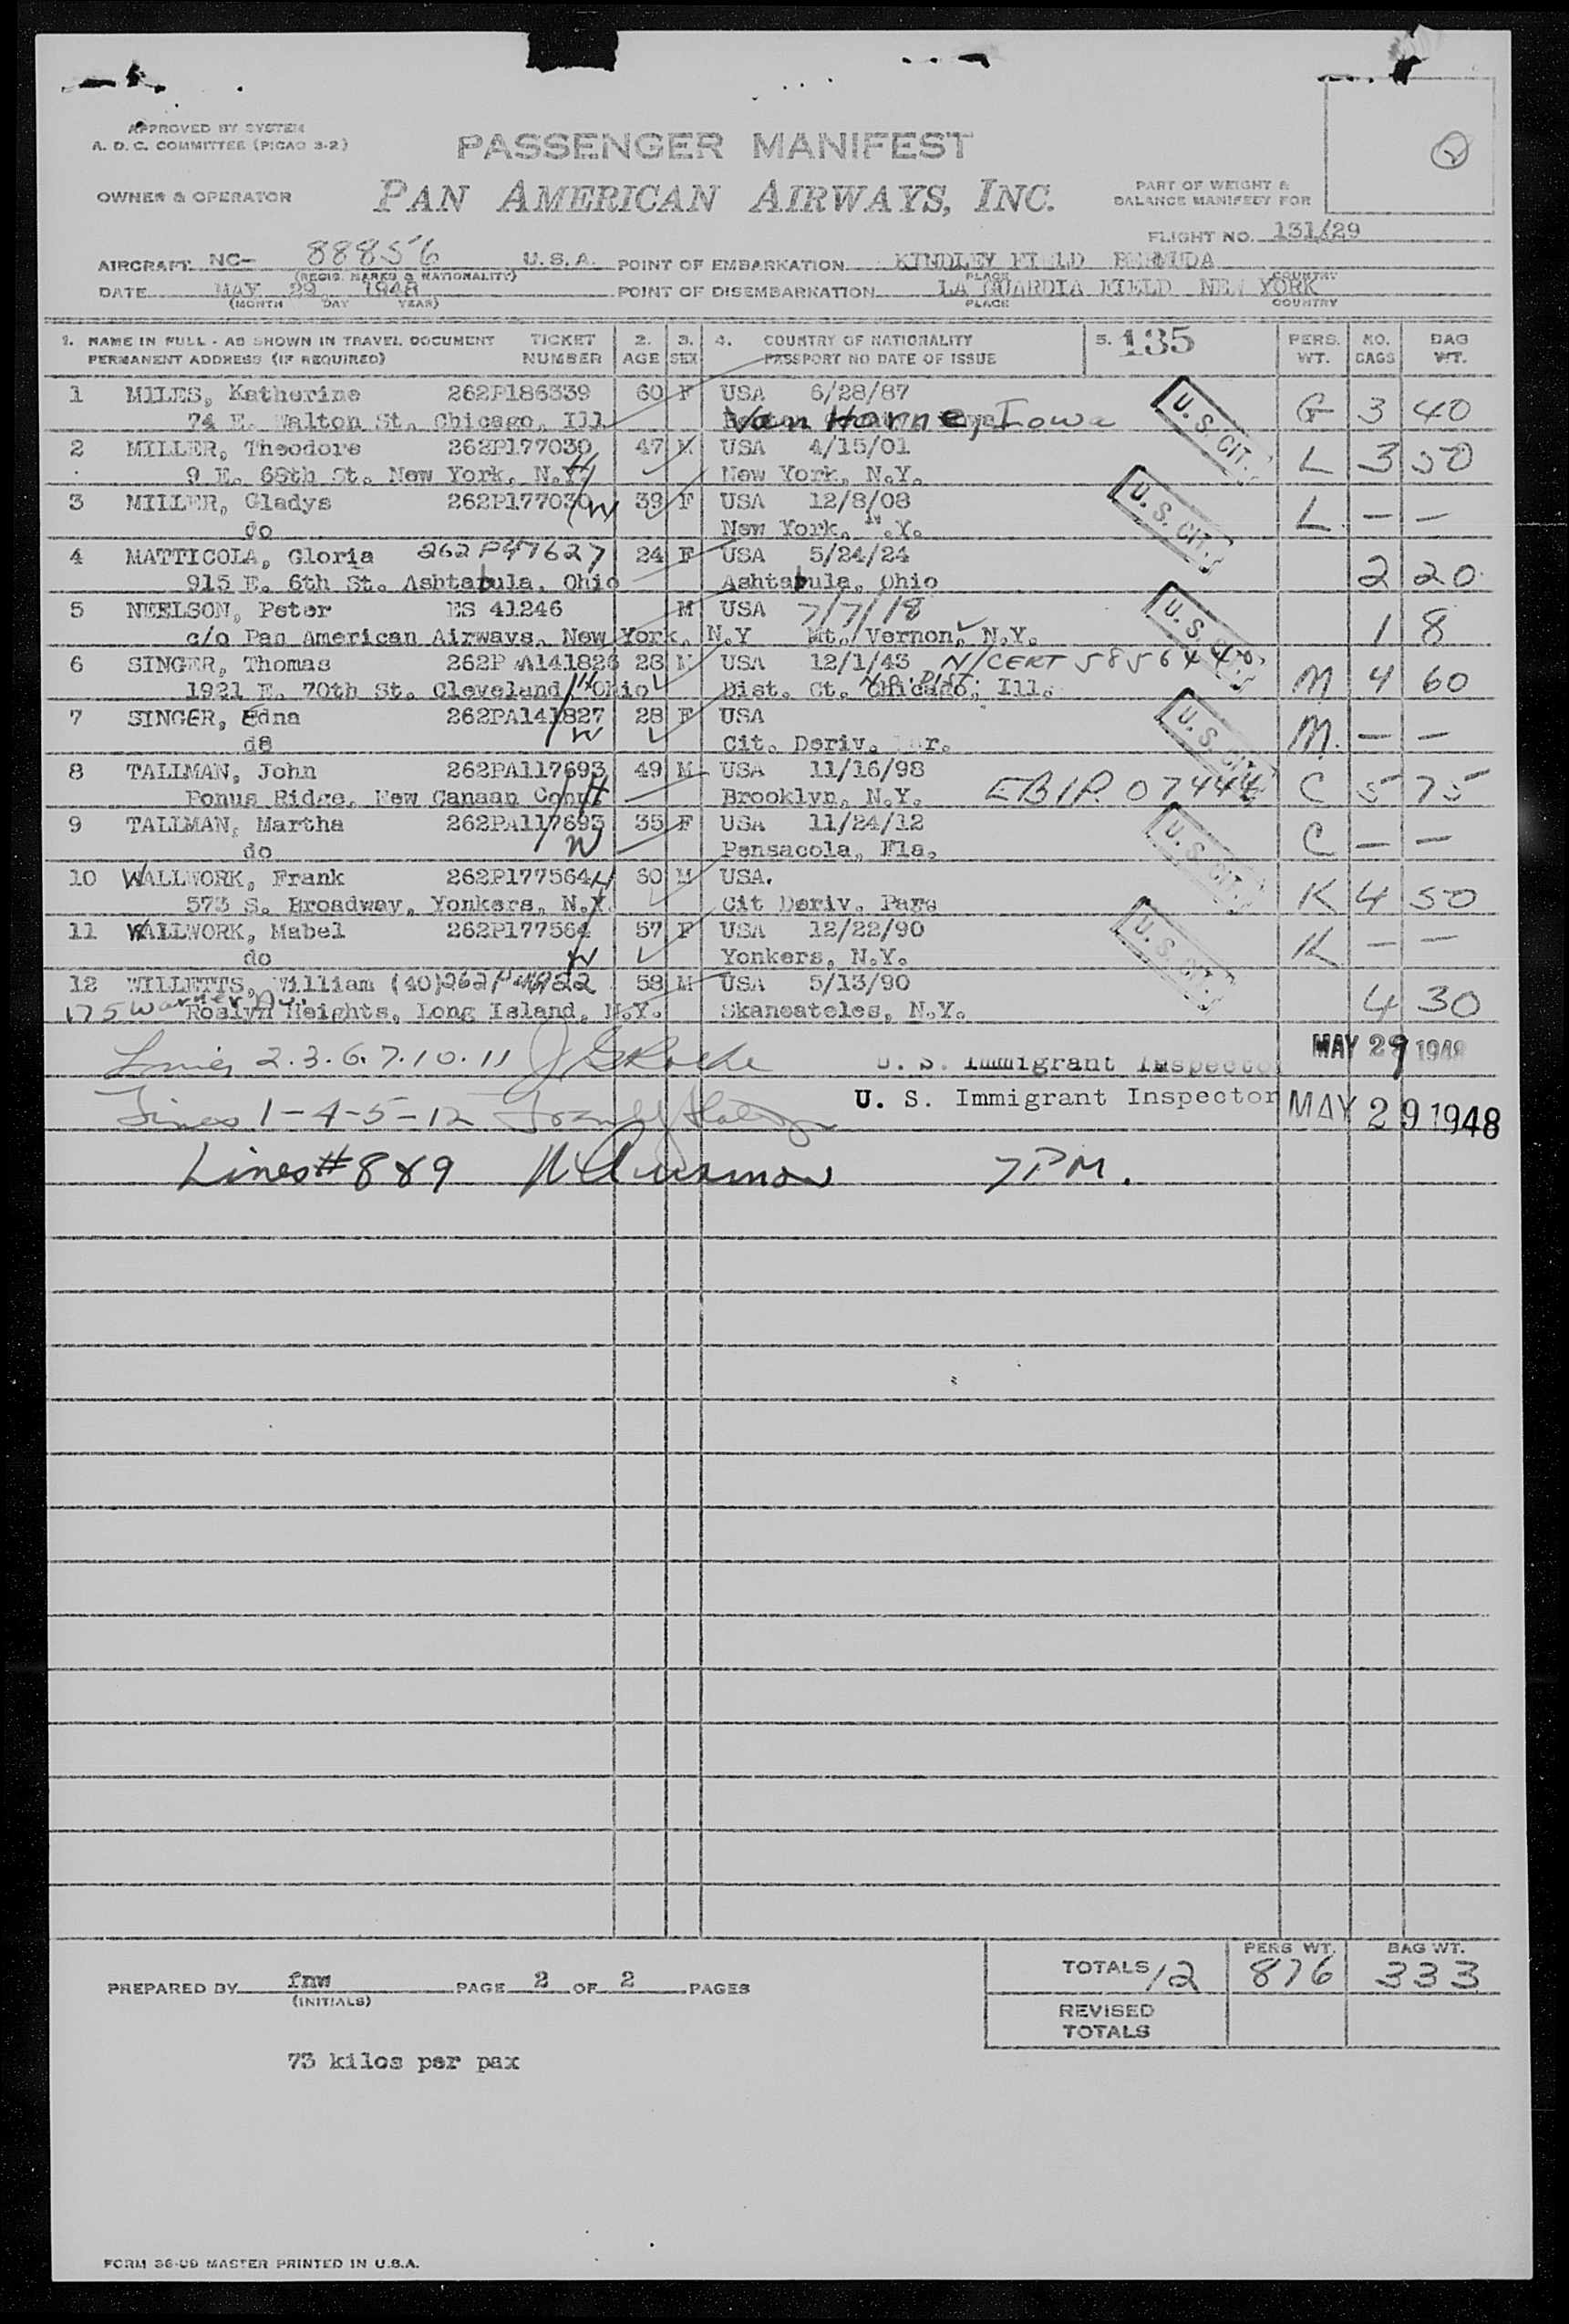 APPROVED BY SYSTEM
A. O. C. COMMITTEE (PICAO 3-2)
PASSENGER MANIFEST
OWNER & OPERATOR PAN AMERICAN AIRWAYS, INC.
PART OF WEIGHT &
BALANCE MANIFEST FOR
FLIGHT NO. 131/29
AIRCRAFT NC- 88856 U.S.A. POINT OF EMBARKATION KINDLEY FIELD BERMUDA
(REGIS. MARKS & NATIONALITY) PLACE COUNTRY
DATE MAY 29 1948 POINT OF DISEMBARKATION LA GUARDIA FIELD NEW YORK
(MONTH DAY YEAR) PLACE COUNTRY
1. NAME IN FULL - AS SHOWN IN TRAVEL DOCUMENT TICKET 2. 3. 4. COUNTRY OF NATIONALITY 5. 135 PERS. NO. BAG
PERMANENT ADDRESS (IF REQUIRED) NUMBER AGE SEX PASSPORT NO DATE OF ISSUE WT. BAGS WT.
1 MILES, Katherine 262P186339 60 F USA 6/28/87 U. S. CIT.
74 E. Walton St. Chicago, Ill Van Horne, Iowa G 3 40
2 MILLER, Theodore 262P177030 47 M USA 4/15/01
9 E. 68th St. New York, N.Y. H New York, N.Y. L 3 50
3 MILLER, Gladys 262P177030 W 39 F USA 12/8/08 U. S. CIT.
do New York, N.Y. L - -
4 MATTICOLA, Gloria 262P47627 24 F USA 5/24/24
915 E. 6th St. Ashtabula, Ohio Ashtabula, Ohio 2 20
5 NEELSON, Peter ES 41246 M USA 7/7/18 U. S.
c/o Pan American Airways, New York, N.Y Mt. Vernon, N.Y. 1 8
6 SINGER, Thomas 262P A141826 28 M USA 12/1/43 N/CERT 5856440
1921 E. 70th St. Cleveland, Ohio H Dist. Ct. Chicago, Ill. NO. DIST. M 4 60
7 SINGER, Edna 262PA141827 28 F USA U. S. CIT.
do W Cit. Deriv. M - -
8 TALLMAN, John 262PA117693 49 M USA 11/16/98
Ponus Ridge, New Canaan Conn H Brooklyn, N.Y. C 5 75
9 TALLMAN, Martha 262PA117693 35 F USA 11/24/12 U. S. CIT.
do W Pensacola, Fla. C - -
10 WALLWORK, Frank 262P177564 H 60 M USA.
573 S. Broadway, Yonkers, N.Y. Cit Deriv. Pare K 4 50
11 WALLWORK, Mabel 262P177564 57 F USA 12/22/90 U. S. CIT.
do W Yonkers, N.Y. K - -
12 WILLETTS, William (40) 58 M USA 5/13/90
175 Warner Av. Roslyn Heights, Long Island, N.Y. Skaneateles, N.Y. 4 30
Lines 2.3.6.7.10.11 U. S. Immigrant Inspector MAY 29 1948
Lines 1-4-5-12 U. S. Immigrant Inspector MAY 29 1948
Lines # 8 & 9 7 PM.
TOTALS 12 PERS WT. 876 BAG WT. 333
PREPARED BY fnw PAGE 2 OF 2 PAGES
(INITIALS)
REVISED
TOTALS
73 kilos per pax
FORM 36-UD MASTER PRINTED IN U.S.A.